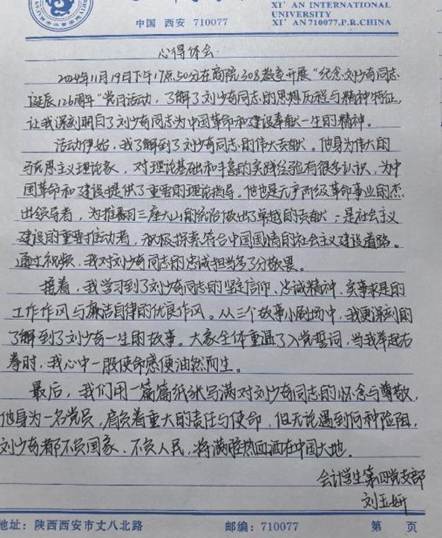 XI'AN INTERNATIONAL
UNIVERSITY
中国 西安 710077
XI'AN 710077,P.R.CHINA
心得体会
2024年11月19日下午17点50分在商院303教室开展“纪念刘少奇同志
诞辰126周年”党日活动，了解了刘少奇同志的思想历程与精神特征，
让我深刻明白了刘少奇同志为中国革命和建设奉献一生的精神。
活动伊始，我了解到了刘少奇同志的伟大贡献。他身为伟大的
马克思主义理论家，对理论基础和丰富的实践经验有很多认识，为中
国革命和建设提供了重要的理论指导。他也是无产阶级革命事业的杰
出领导者，为推翻三座大山的统治做出了卓越的贡献；是社会主义
建设的重要推动者，积极探索符合中国国情的社会主义建设道路。
通过视频，我对刘少奇同志的忠诚担当多了分敬畏。
接着，我学习到了刘少奇同志的坚定信仰、忠诚精神、实事求是的
工作作风与廉洁自律的优良作风。从三个故事小剧场中，我更深刻的
了解到了刘少奇一生的故事。大家全体重温了入党誓词，当我举起右
拳时，我心中一股使命感便油然而生。
最后，我们用一篇篇纸张写满对刘少奇同志的怀念与尊敬，
他身为一名党员，肩负着重大的责任与使命，但无论遇到何种险阻，
刘少奇都不负国家、不负人民，将满腔热血洒在中国大地。
会计学生第四党支部
刘玉妍
地址：陕西西安市丈八北路 邮编：710077 第 页